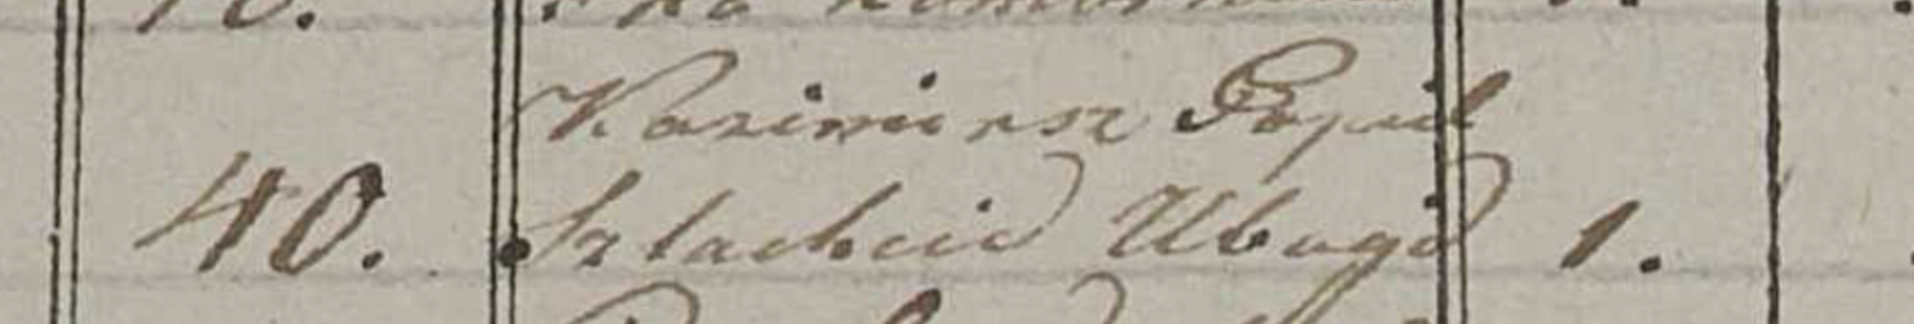 Kazimirsz Popiel
40. Szlachcic Ubogi 1.